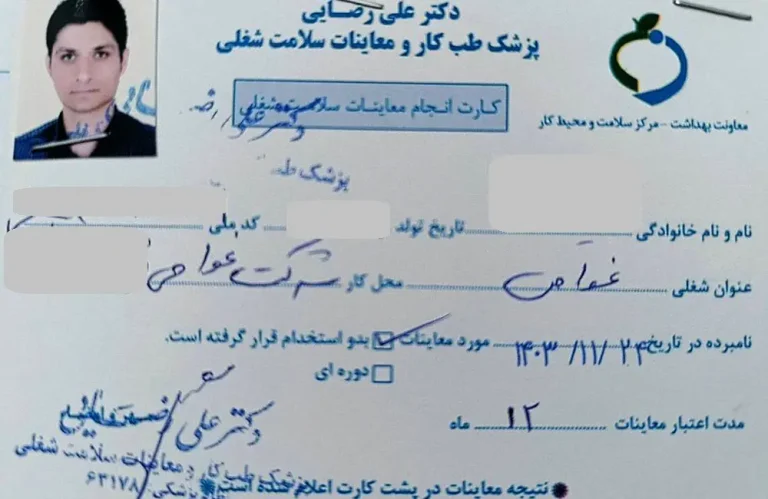 دکتر علی رضایی
پزشک طب کار و معاینات سلامت شغلی
کارت انجام معاینات سلامت شغلی
معاونت بهداشت - مرکز سلامت و محیط کار
پزشک طب
نام و نام خانوادگی تاریخ تولد کد ملی
عنوان شغلی غواص محل کار شرکت غواصی
نامبرده در تاریخ ۱۴۰۳/۱۱/۲۴ مورد معاینات بدو استخدام قرار گرفته است.
دوره ای
مدت اعتبار معاینات ۱۲ ماه
دکتر علی
پزشک طب کار و معاینات سلامت شغلی
۶۳۱۷۸
نتیجه معاینات در پشت کارت اعلام شده است